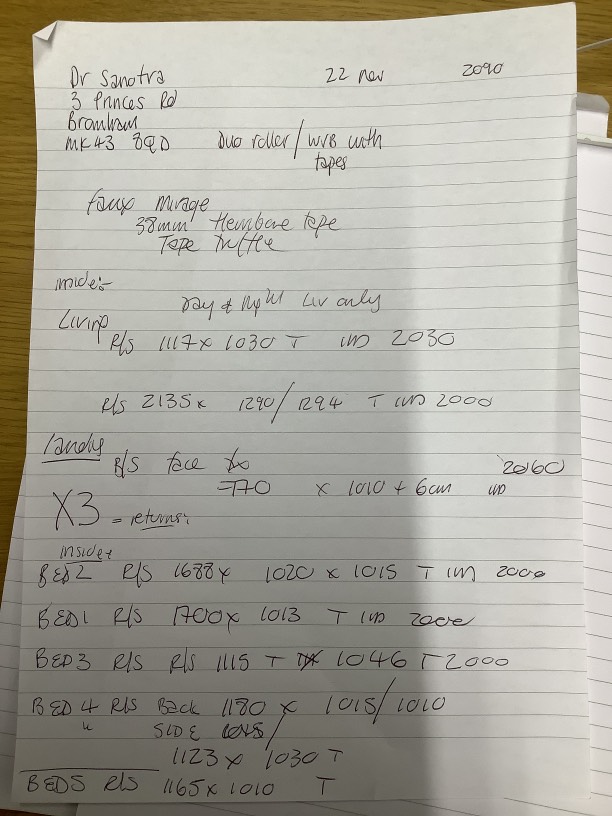 Dr Sanotra 22 Nov 2090
3 Princes Rd
Bromham
MK43 8QD Duo roller / WVB with
tapes
faux mirage
38mm tape
Tape
inside:-
Day & Night Liv only
Living
R/S 1117 x 1030 T 2030
R/S 2135 x 1290/1294 T 2000
R/S face 2060
770 x 1010 + 6cm
X3 = returns:
inside:
BED 2 R/S 1688 x 1020 x 1015 T 2000
BED 1 R/S 1700 x 1013 T 2000
BED 3 R/S R/S 1115 T 1046 T 2000
BED 4 R/S Back 1180 x 1015/1010
" SIDE
1123 x 1030 T
BED5 R/S 1165 x 1010 T